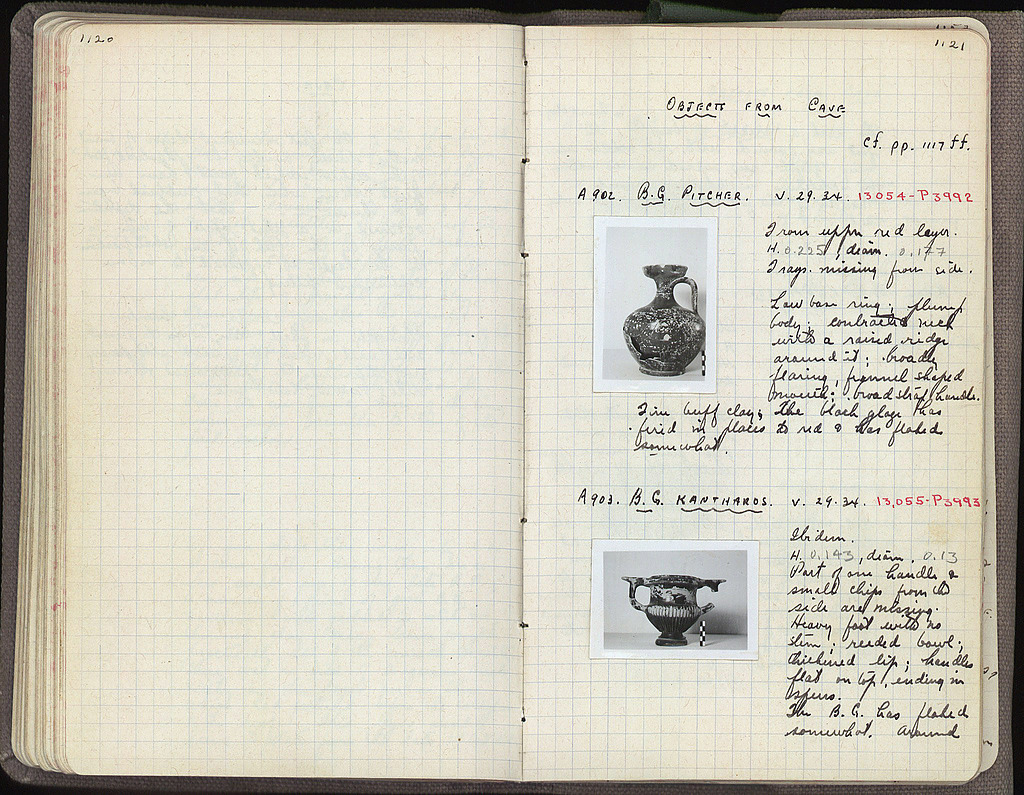 1120
1121
OBJECTS FROM CAVE
cf. pp. 1117 ff.
A 902. B.G. PITCHER. V. 29. 34. 13054-P3992
From upper red layer.
H. 0.225, diam. 0.177
Frags. missing from side.
Low base ring; plump
body; contracted neck
with a raised ridge
around it; broadly
flaring, funnel shaped
mouth; broad strap handle.
Fine buff clay; the black glaze has
fired in places to red & has flaked
somewhat.
A 903. B.G. KANTHAROS. V. 29. 34. 13,055-P3993
Ibidem.
H. 0.143, diam. 0.13
Part of one handle &
small chips from the
side are missing.
Heavy foot with no
stem; reeded bowl;
thickened lip; handles
flat on top, ending in
spurs.
The B.G. has flaked
somewhat. Around